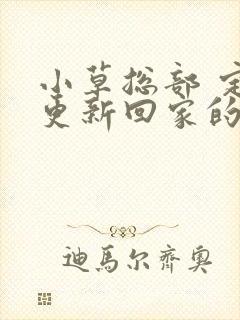 小草总部
更新回家的
迪馬尔齊奥